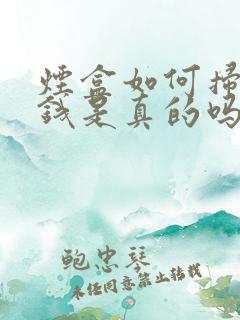 煙盒如何掃
錢是真的嗎
鲍忠琴
未经同意禁止转载